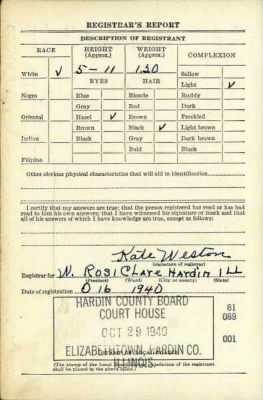 REGISTRAR'S REPORT
DESCRIPTION OF REGISTRANT
RACE HEIGHT (Approx.) WEIGHT (Approx.) COMPLEXION
White ✓ 5-11 130 Sallow
EYES HAIR Light ✓
Negro Blue Blonde Ruddy
Gray Red Dark
Oriental Hazel ✓ Brown Freckled
Brown Black ✓ Light brown
Indian Black Gray Dark brown
Bald Black
Filipino
Other obvious physical characteristics that will aid in identification
I certify that my answers are true; that the person registered has read or has had
read to him his own answers; that I have witnessed his signature or mark and that
all of his answers of which I have knowledge are true, except as follows:
Kate Weston
(Signature of registrar)
Registrar for W. Rosi Clare Hardin ILL
(Precinct) (Ward) (City or county) (State)
Date of registration O 16 1940
HARDIN COUNTY BOARD
COURT HOUSE
OCT 29 1940
ELIZABETHTOWN, HARDIN CO.
ILLINOIS
61
069
001
(The stamp of the Local Board having jurisdiction of the registrant
shall be placed in the above space.)